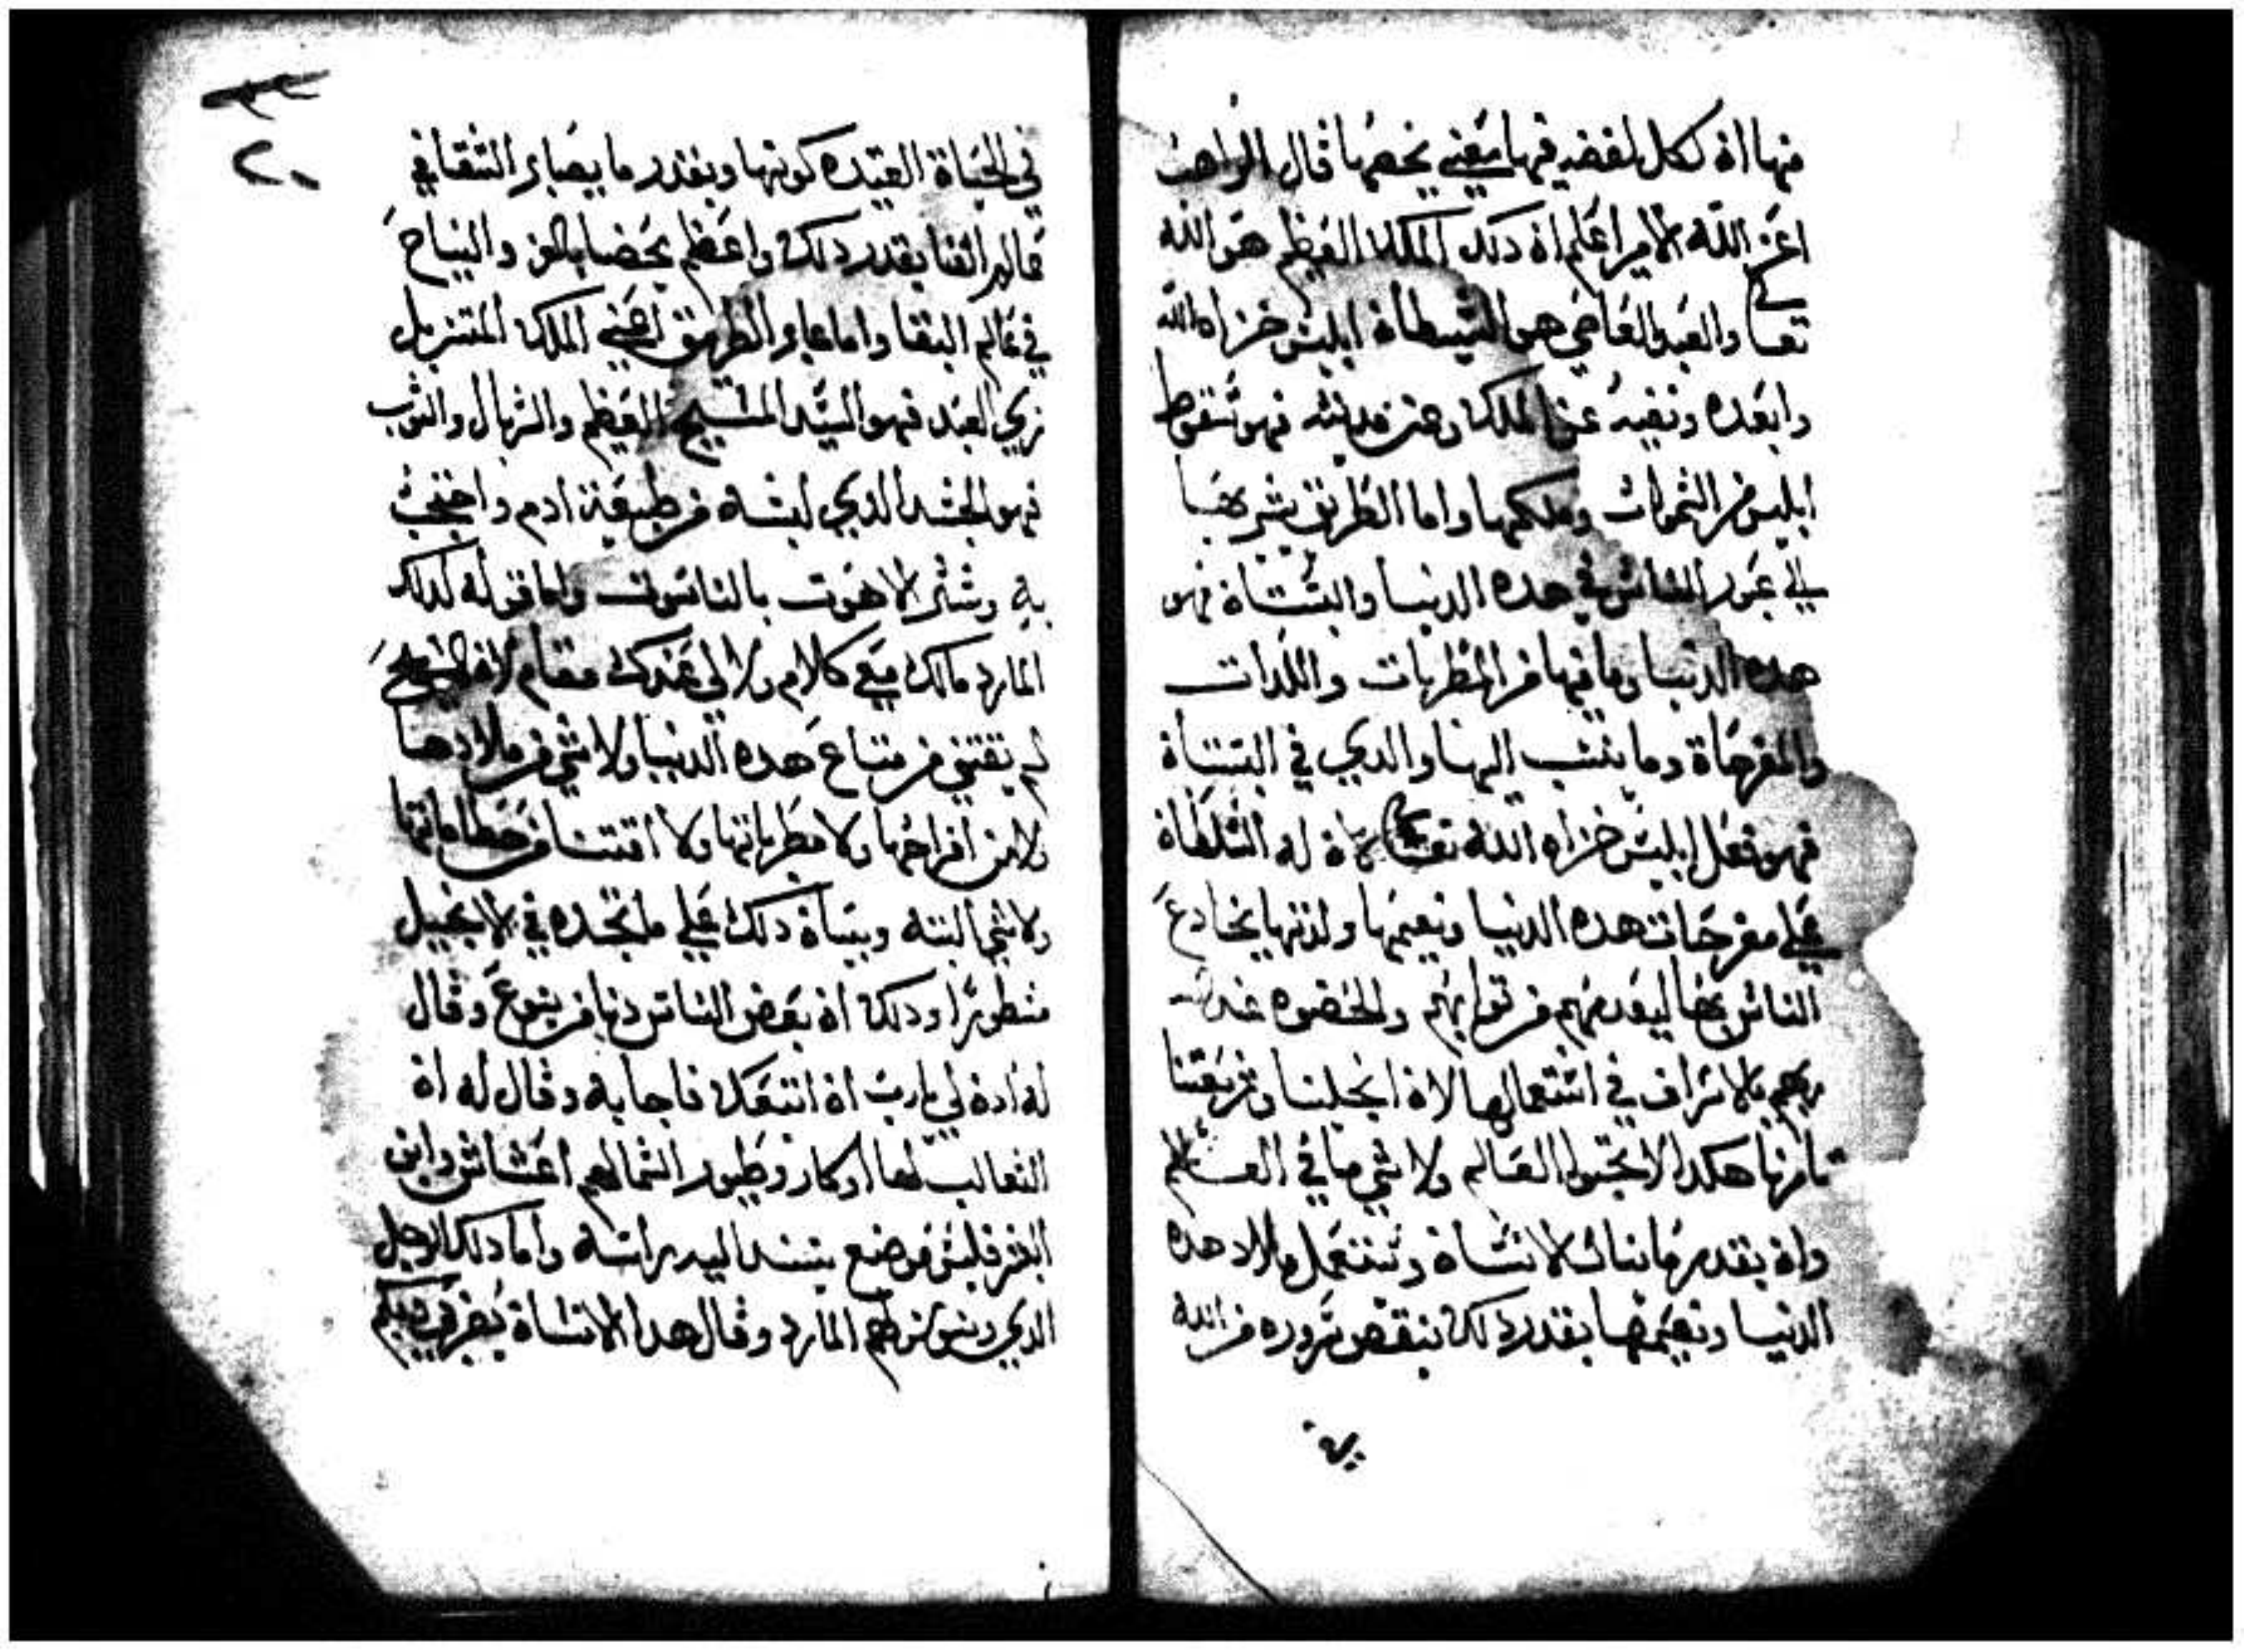 منها ان لكل لفضه فيها معني يخصها قال الراهب
اعز الله الامير اعلم ان دلك الملك العظيم هو الله
تعالي والعبد العاصي هو الشيطان ابليس خزاه الله
وابعده ونفيه عن الملك وعن مدينته فهو سقوط
ابليس من السموات وملكها واما الطريق
في عبور الناس في هده الدنيا والبستان فهو
هده الدنيا وما فيها من المطربات واللدات
والمفرحاة وما ينسب اليها والدي في البستان
فهو فعل ابليس خزاه الله تعالي لان له السلطان
علي مفرحات هده الدنيا ونعيمها ولدتها يخادع
الناس بها ليعدمهم من توابهم والحضوه عند
ربهم بالاسراف في استعمالها لان انجيلنا وشريعتنا
تامرنا هكدا لا تحبوا العالم ولا شي مما في العالم
وان بقدر ما ينال الانسان ويستعمل ملاد هده
الدنيا ونعيمها بقدر دلك ينقص سروره من الله
في الحياة العتيده كونها وبقدر ما يصبر
بقدر دلك واعظم يحضا بالعز والنياح
في عالم البقا واما عابر الطريق اعني الملك المتنزيل
بزي العبد فهو السيد المسيح العظيم والسربال والتوب
فهو الجسد الدي لبسه من طبيعة ادم واحتجب
به وستر لاهوت بالناسوت واما قوله لدلك
المارد مالك معي كلام ولا لي عندك مقام لان المسيح
لم يقتني من متاع هده الدنيا ولا شي من ملادها
ولا من افراحها ولا مطرباتها ولا اقتنا من حطاماتها
ولا شي البته وبيان دلك علي ما تجده في الانجيل
مسطورا ودلك ان بعض الناس دنا من يسوع وقال
له ادن لي يارب ان اتبعك فاجابه وقال له ان
التعالب لها اوكار وطيور السما لهم اعشاش وابن
البشر فليس موضع يسند اليه راسه واما دلك الرجل
الدي المارد وقال هدا الانسان